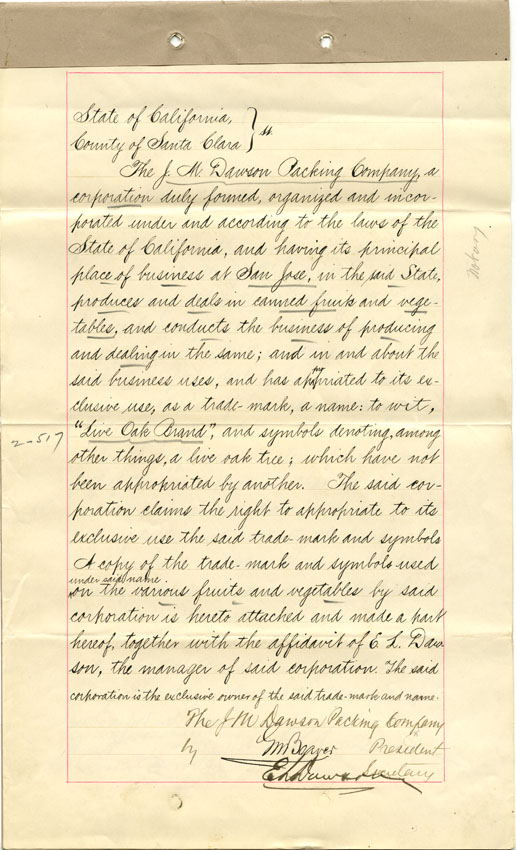 State of California,
County of Santa Clara } ss.
The J. M. Dawson Packing Company, a
corporation duly formed, organized and incor-
porated under and according to the laws of the
State of California, and having its principal
place of business at San Jose, in the said State,
produces and deals in canned fruits and vege-
tables, and conducts the business of producing
and dealing in the same; and in and about the
said business uses, and has appropriated to its ex-
clusive use, as a trade-mark, a name: to wit,
"Live Oak Brand", and symbols denoting, among
other things, a live oak tree; which have not
been appropriated by another. The said cor-
poration claims the right to appropriate to its
exclusive use the said trade-mark and symbols
A copy of the trade-mark and symbols used
under said name.
on the various fruits and vegetables by said
corporation is hereto attached and made a part
hereof, together with the affidavit of E. L. Daw-
son, the manager of said corporation. The said
corporation is the exclusive owner of the said trade-mark and name.
The J M Dawson Packing Company
by President
Secretary
2-517
Notary